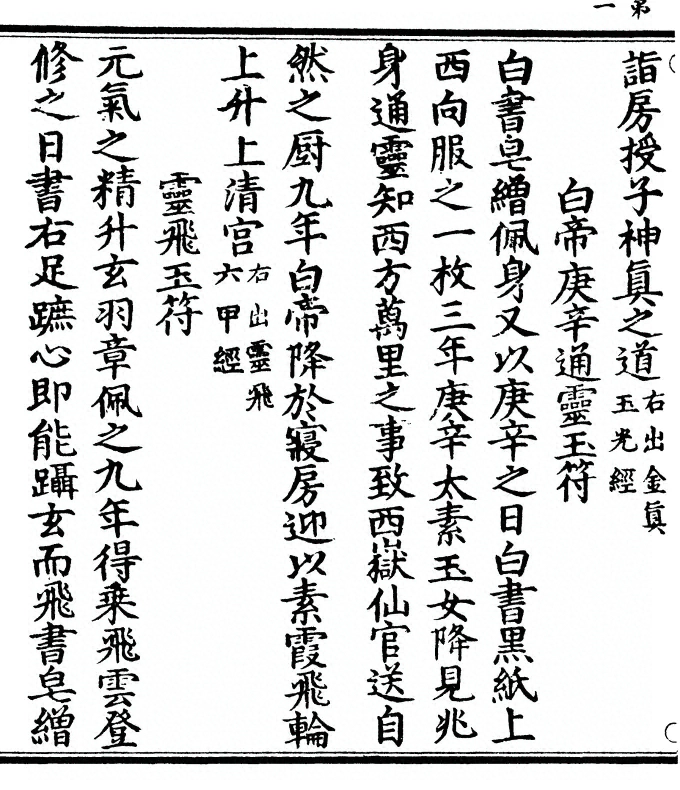 第一
詣房授子神眞之道右出金眞玉光經
白帝庚辛通靈玉符
白書皂繒佩身又以庚辛之日白書黑紙上
西向服之一枚三年庚辛太素玉女降見兆
身通靈知西方萬里之事致西嶽仙官送自
然之厨九年白帝降於寢房迎以素霞飛輪
上升上清宮右出靈飛六甲經
靈飛玉符
元氣之精升玄羽章佩之九年得乘飛雲登
修之日書右足蹠心即能躡玄而飛書皂繒